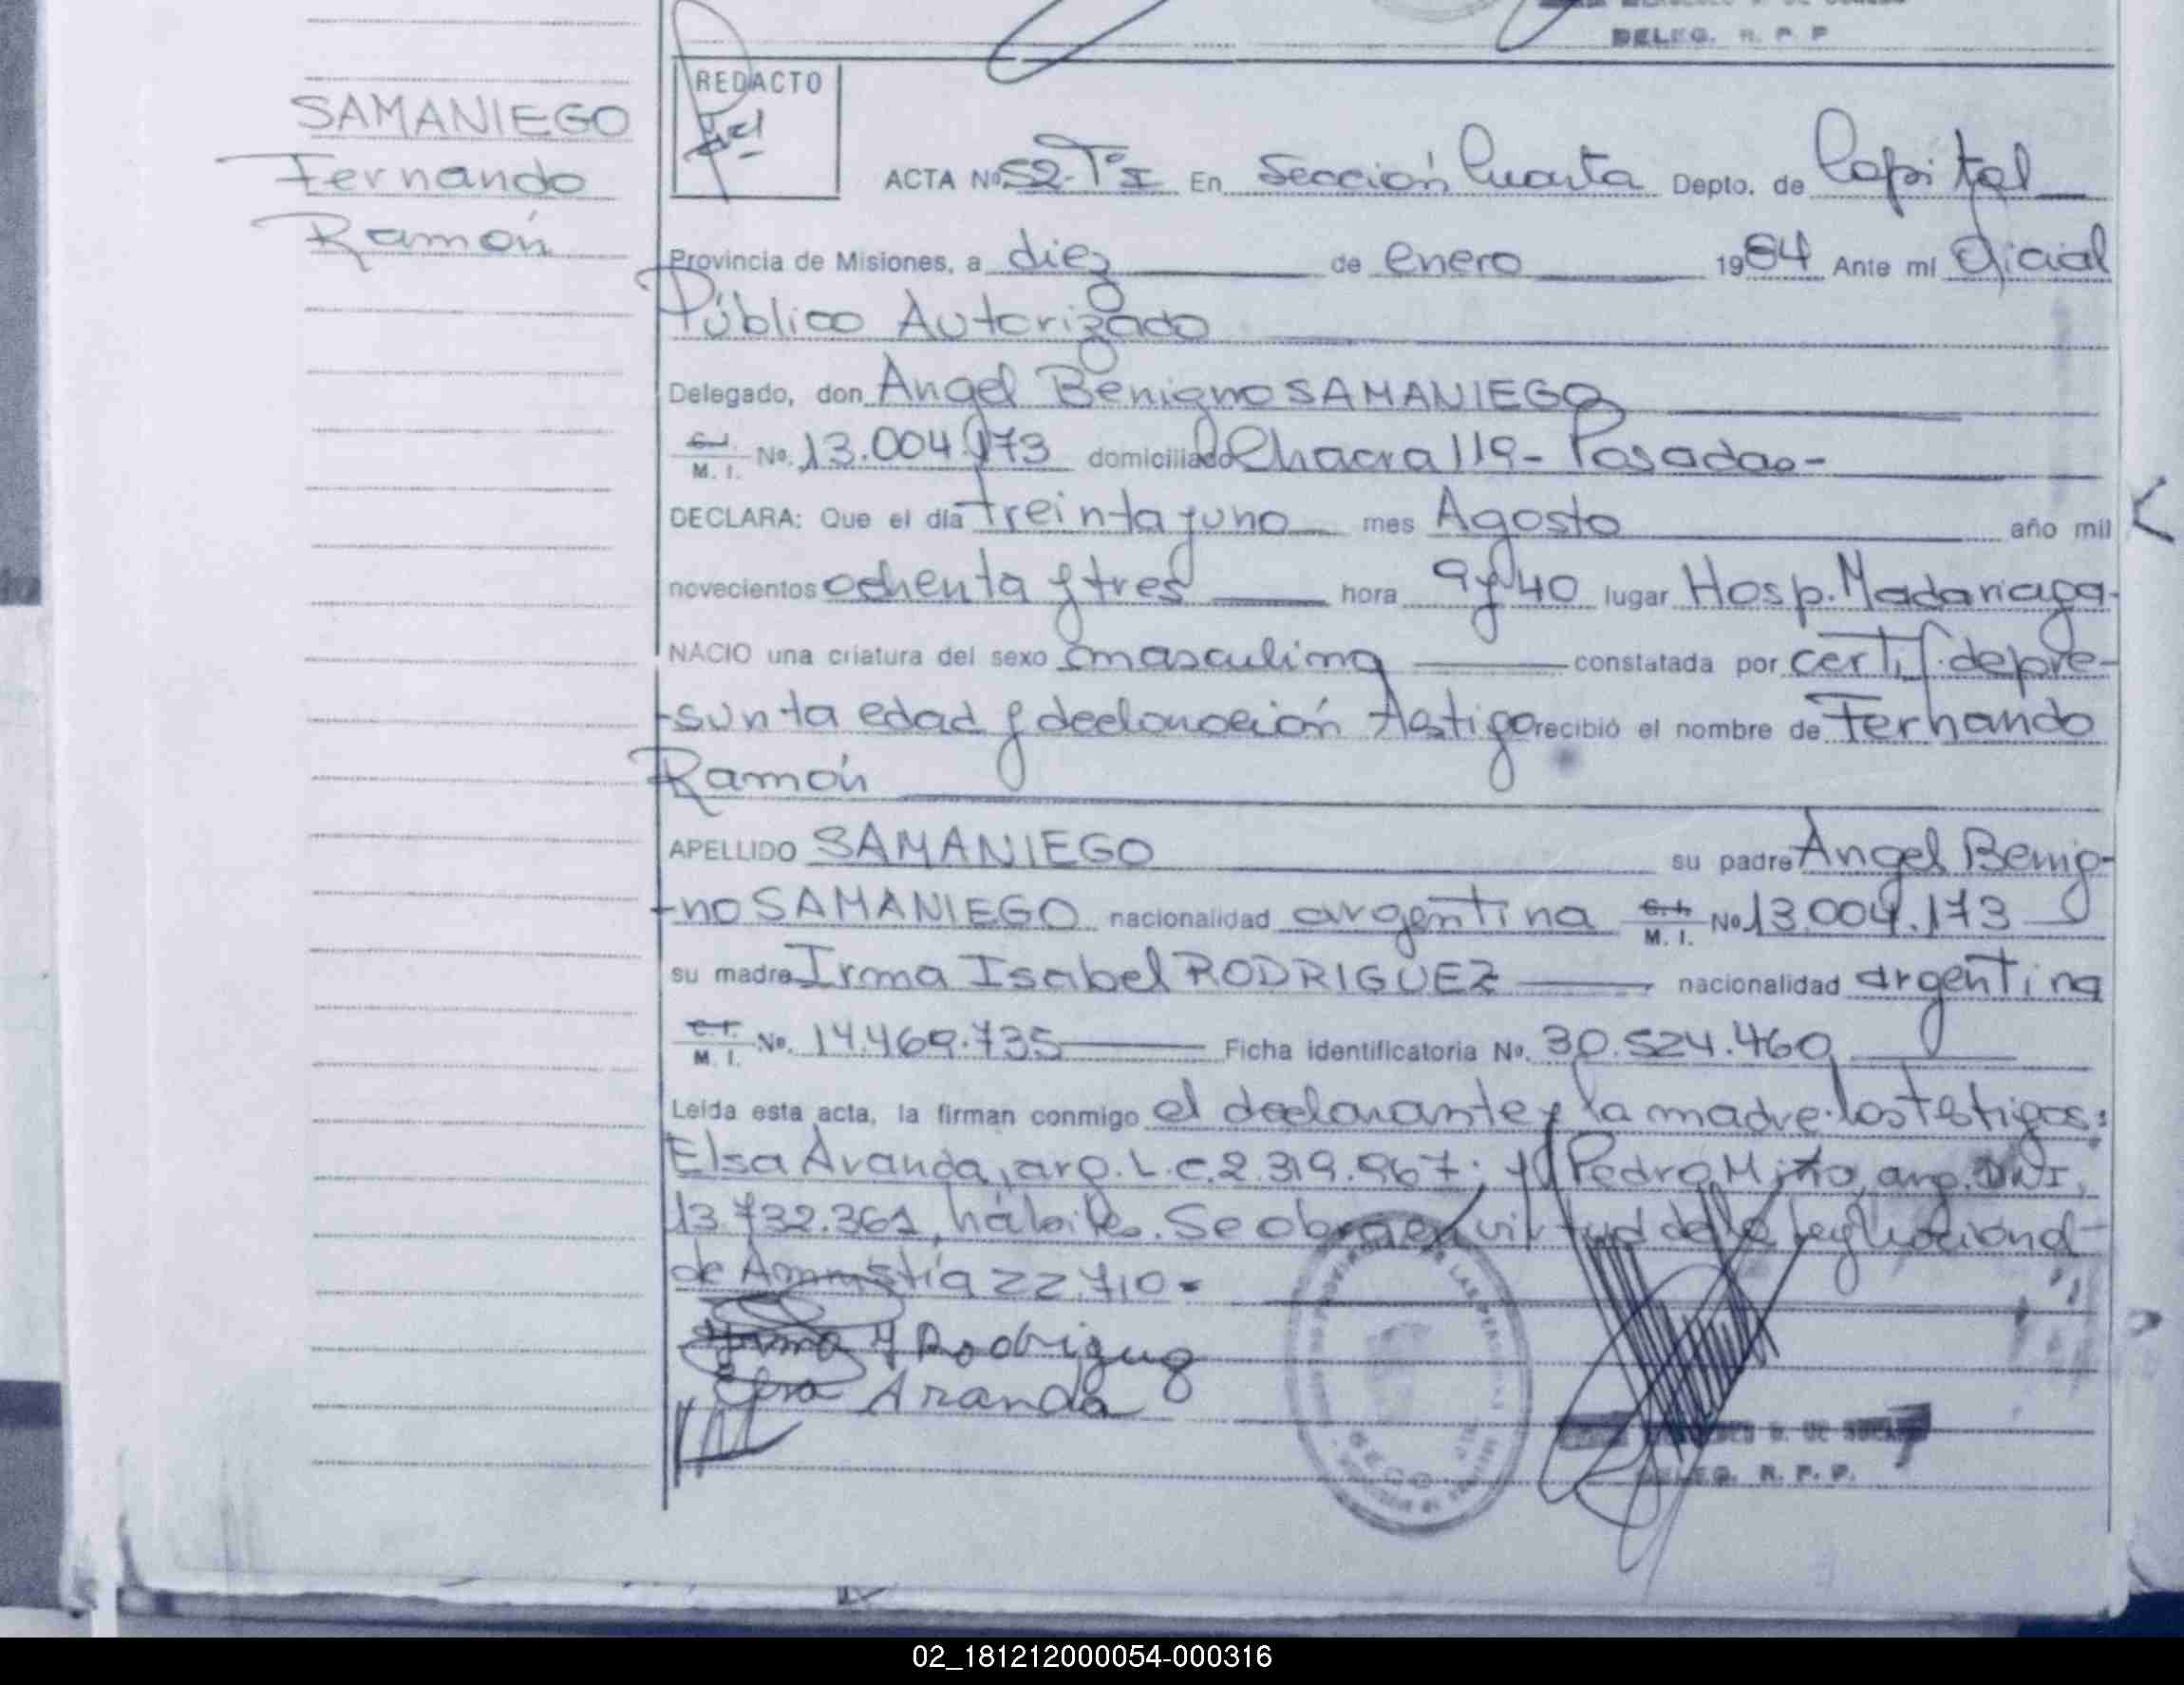 DELEG. R. P. P
SAMANIEGO
Fernando
Ramón
REDACTO
ACTA Nº 52-Tº I En Sección Cuarta Depto. de Capital
Provincia de Misiones, a diez de enero 1984 Ante mí Oficial
Público Autorizado
Delegado, don Angel Benigno SAMANIEGO
C. I. M. I. Nº. 13.004.173 domiciliado Chacra 119 - Posadas -
DECLARA: Que el día treinta y uno mes Agosto año mil
novecientos ochenta y tres hora 9 y 40 lugar Hosp. Madariaga-
NACIO una criatura del sexo masculino constatada por certif. de pre-
-sunta edad y declaración testigo recibió el nombre de Fernando
Ramón
APELLIDO SAMANIEGO su padre Angel Benig-
-no SAMANIEGO nacionalidad argentina C. I. M. I. Nº 13.004.173
su madre Irma Isabel RODRIGUEZ nacionalidad argentina
C. I. M. I. Nº. 14.469.735 Ficha identificatoria Nº. 30.524.460
Leída esta acta, la firman conmigo el declarante y la madre. los testigos:
Elsa Aranda, arg. L.C. 2.319.967; y Pedro Miño, arg. DNI,
13.732.361, hábiles. Se obra en virtud de la ley Nacional-
de Amnistía 22.710-
Irma I Rodriguez
Elsa Aranda
DELEG. R. P. P.
02_181212000054-000316